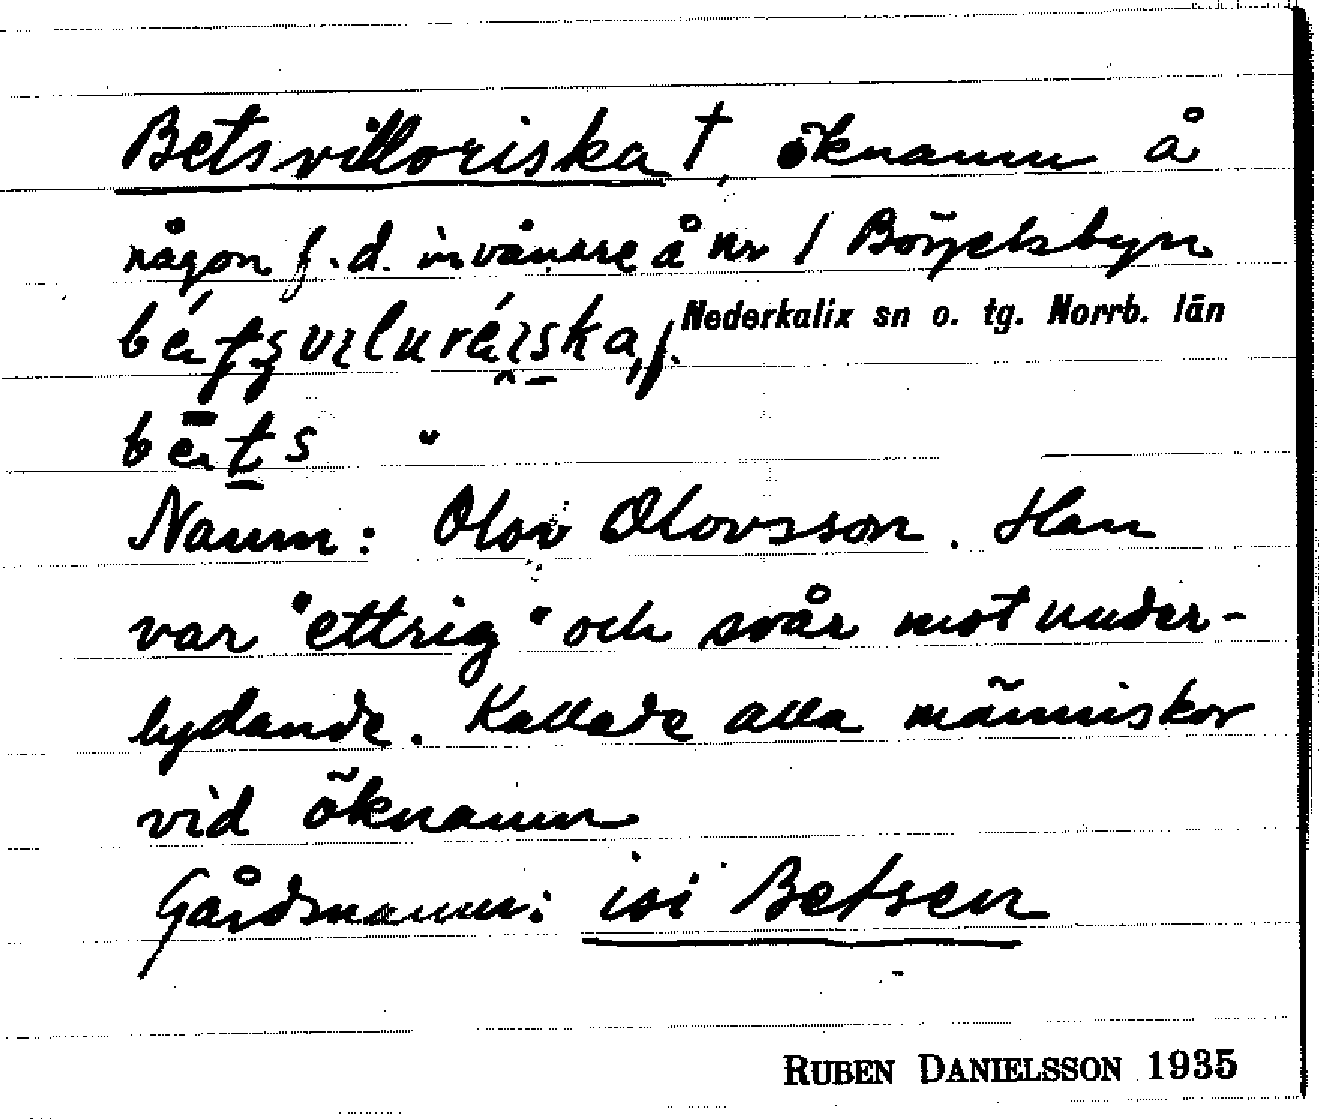 Betsvilloriska †, öknamn å
någon f.d. invånare å nr 1 Börjelsbyn
Nederkalix sn o. tg. Norrb. län
bets "
Namn: Olov Olovsson. Han
var "ettrig" och svår mot under-
lydande. Kallade alla människor
vid öknamn
Gårdsnamn: isi Betsen
RUBEN DANIELSSON 1935